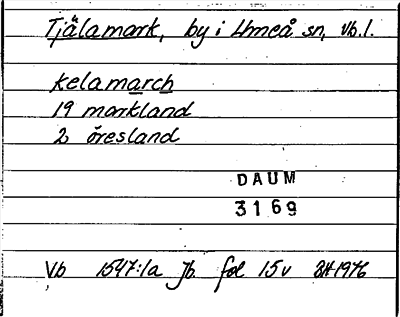 Tjälamark, by i Umeå sn, Vb.l.
Kelamarch
19 markland
2 öresland
DAUM
3169
Vb 1547:1a Jb fol 15v BH 1976